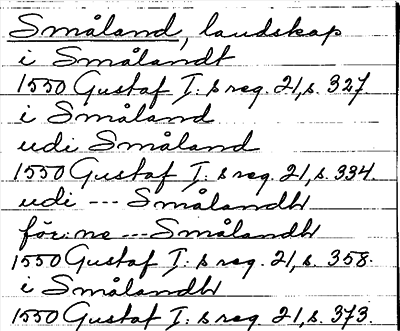 Småland, landskap
i Smålandt
1550 Gustaf I:s reg. 21, s. 327.
i Småland
udi Småland
1550 Gustaf I:s reg. 21, s. 334.
udi --- Smålandh
för:ne --- Smålandh
1550 Gustaf I:s reg. 21, s. 358.
i Smålandh
1550 Gustaf I:s reg. 21, s. 373.